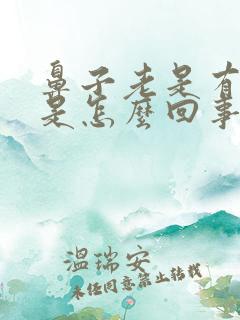 鼻子老是有
是怎麼回事
温瑞安
未经同意禁止转载